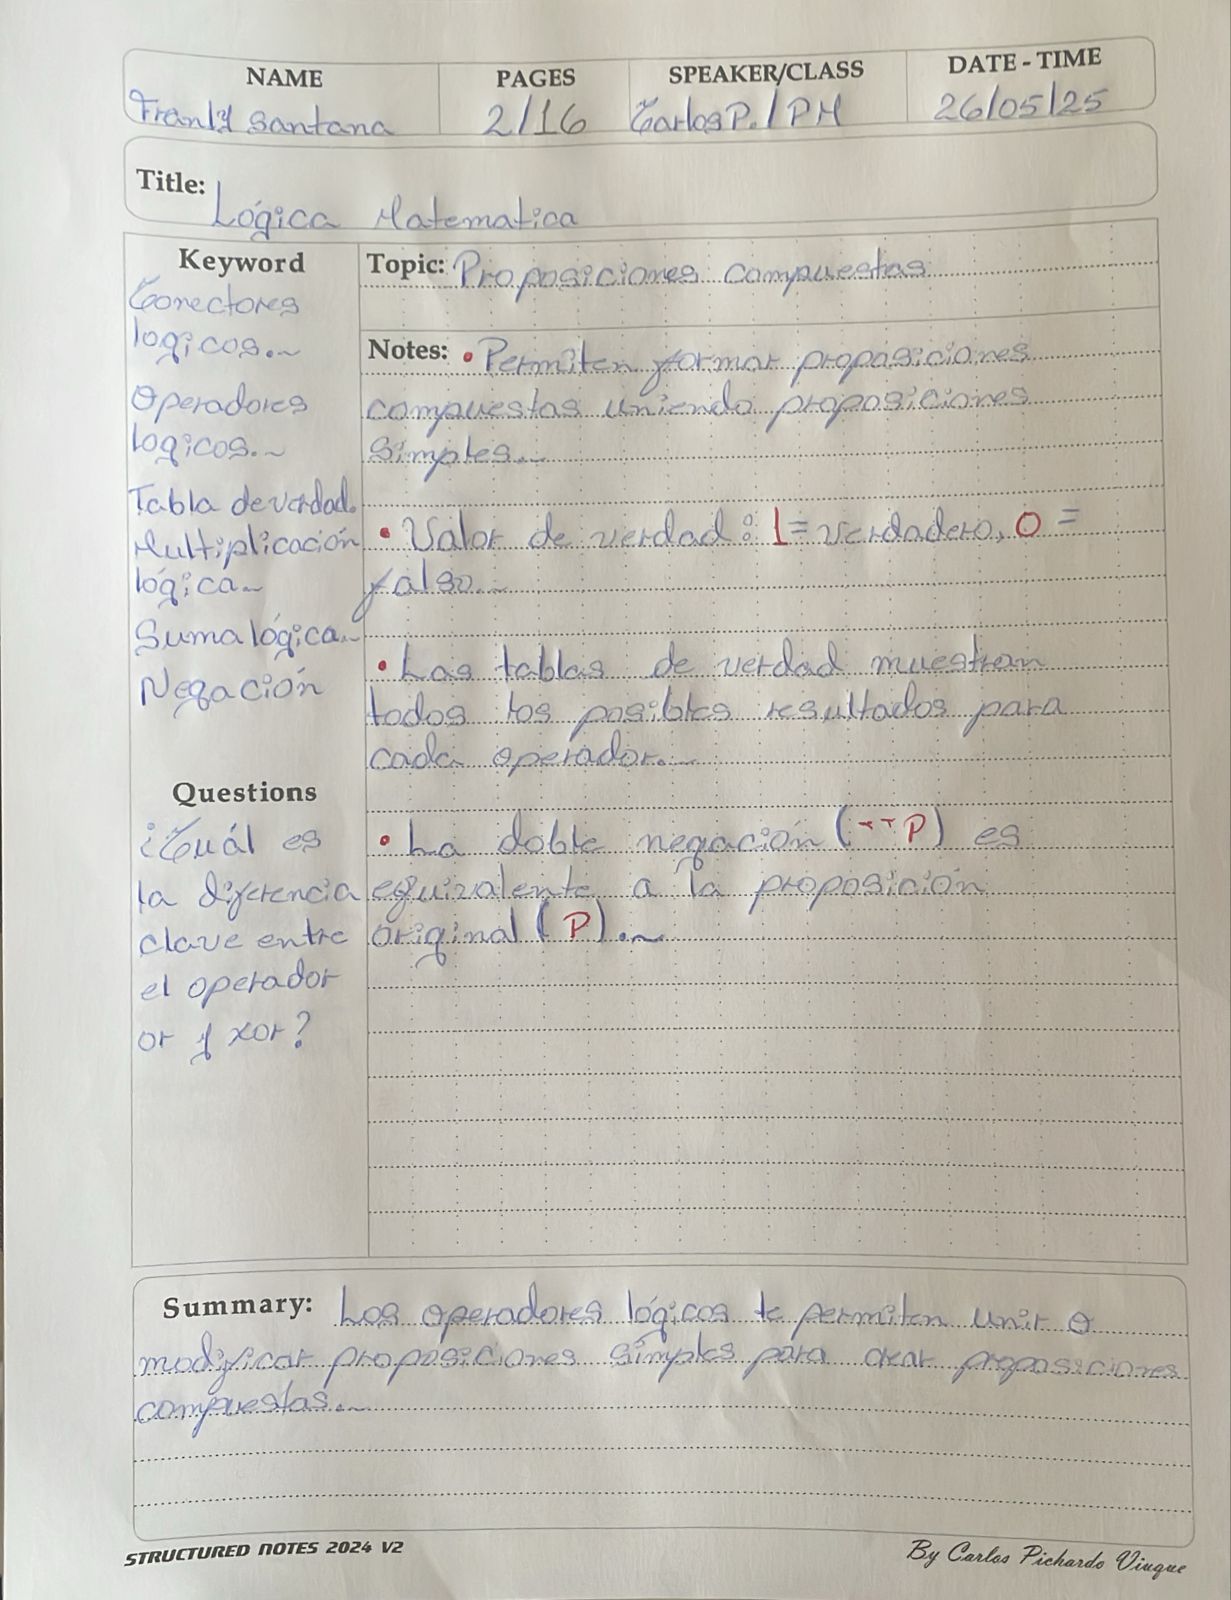 NAME PAGES SPEAKER/CLASS DATE - TIME
Franly Santana 2/16 Carlos P. / PM 26/05/25
Title: Lógica Matematica
Keyword
Conectores
logicos.~
Operadores
logicos.~
Tabla de verdad.
Multiplicación
lógica~
Suma lógica.~
Negación
Questions
¿Cuál es
la diferencia
clave entre
el operador
or y xor?
Topic: Proposiciones compuestas
Notes: • Permiten formar proposiciones
compuestas uniendo proposiciones
simples.~
• Valor de verdad: 1 = verdadero, 0 =
falso.~
• Las tablas de verdad muestran
todos los posibles resultados para
cada operador.~
• La doble negación (¬¬P) es
equivalente a la proposición
original (P).~
Summary: Los operadores lógicos te permiten unir o
modificar proposiciones simples para crear proposiciones
compuestas.~
STRUCTURED NOTES 2024 V2
By Carlos Pichardo Viuque